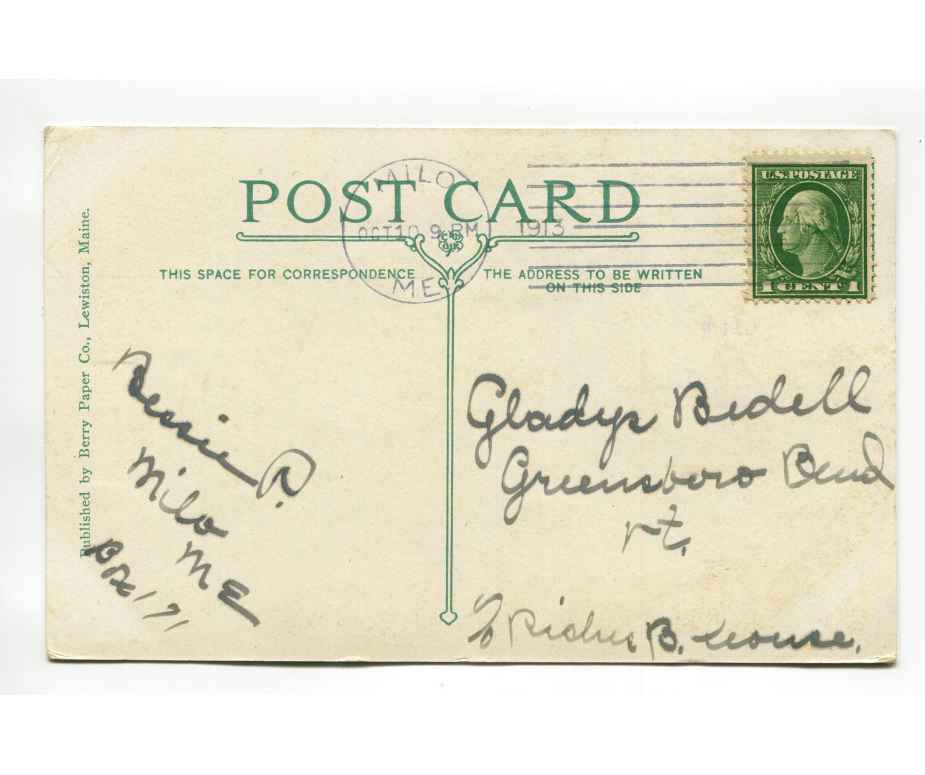 POST CARD
MILO
OCT 10 9 PM
1913
ME
U.S. POSTAGE
1 CENT 1
THIS SPACE FOR CORRESPONDENCE
THE ADDRESS TO BE WRITTEN
ON THIS SIDE
Published by Berry Paper Co., Lewiston, Maine.
Bessie R.
Milo
ME
Box 171
Gladys Bedell
Greensboro Bend
Vt.
c/o B. House.